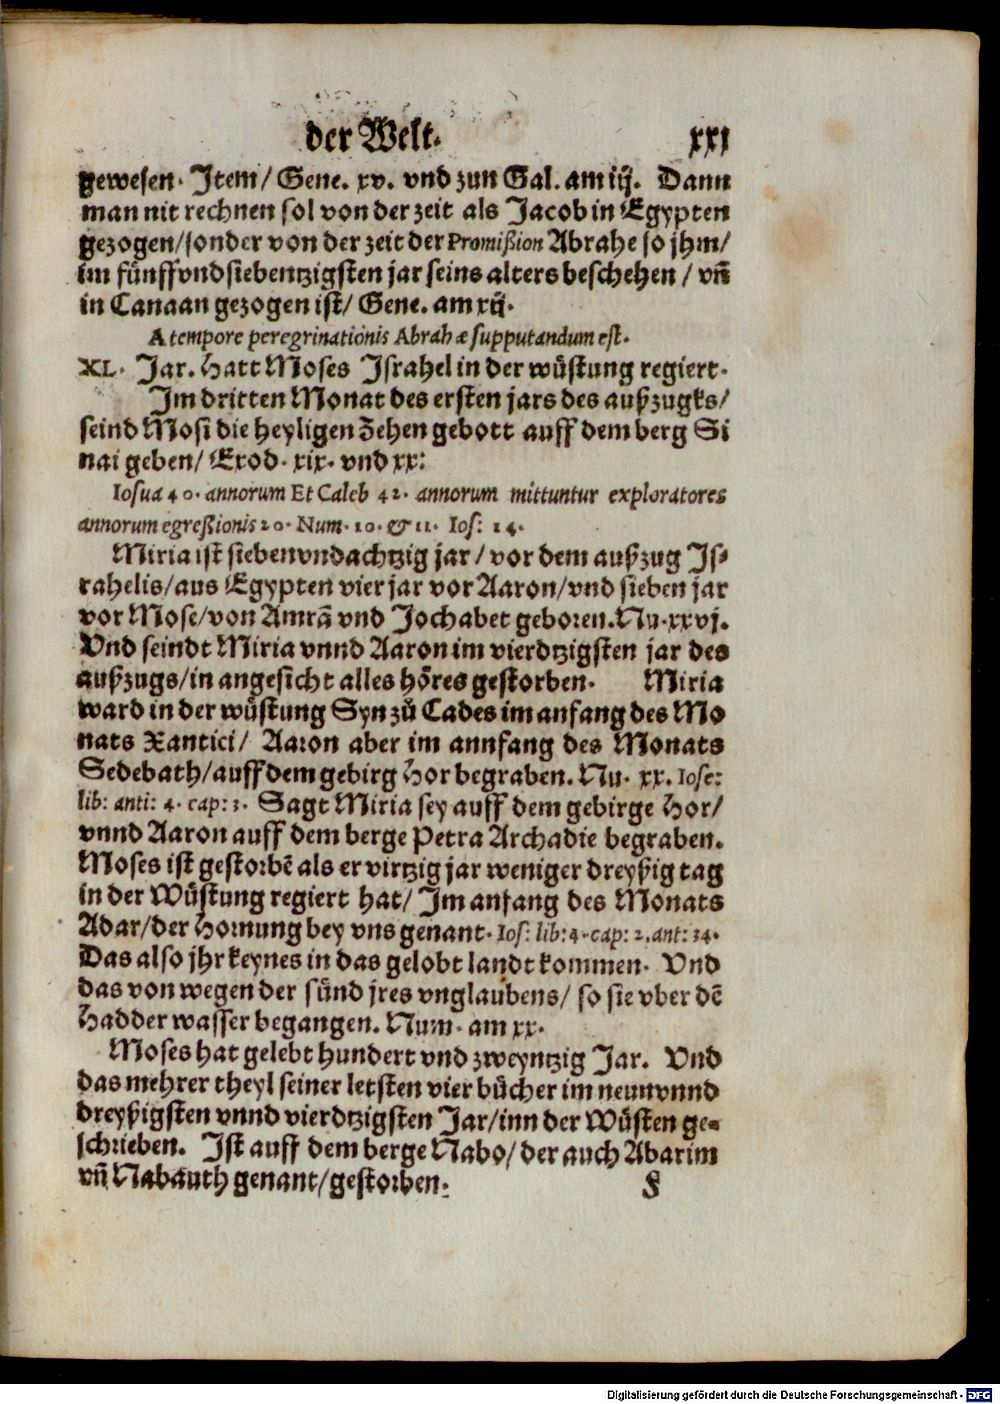 der Welt. xxi
gewesen. Item/ Gene. xv. vnd zun Gal. am iij. Dann
man nit rechnen sol von der zeit als Jacob in Egypten
gezogen/sonder von der zeit der Promißion Abrahe so jhm/
im fünffvndsiebentzigsten jar seins alters beschehen / vñ
in Canaan gezogen ist/ Gene. am xij.
A tempore peregrinationis Abrahæ supputandum est.
XL. Jar. Hatt Moses Israhel in der wüstung regiert.
Im dritten Monat des ersten jars des außzugks/
seind Mosi die heyligen Zehen gebott auff dem berg Si
nai geben/ Exod. xix. vnd xx:
Iosua 40. annorum Et Caleb 42. annorum mittuntur exploratores
annorum egreßionis 20. Num. 10. & 11. Ios: 14.
Miria ist siebenvndachtzig jar / vor dem außzug Is-
rahelis/aus Egypten vier jar vor Aaron/vnd sieben jar
vor Mose/von Amrã vnd Jochabet geboren. Nu. xxvj.
Vnd seindt Miria vnnd Aaron im vierdtzigsten jar des
außzugs/in angesicht alles hőres gestorben. Miria
ward in der wüstung Syn zů Cades im anfang des Mo
nats Xantici/ Aaron aber im annfang des Monats
Sedebath/auff dem gebirg Hor begraben. Nu. xx. Iose:
lib: anti: 4. cap: 3. Sagt Miria sey auff dem gebirge Hor/
vnnd Aaron auff dem berge Petra Archadie begraben.
Moses ist gestorbẽ als er virtzig jar weniger dreyßig tag
in der Wüstung regiert hat/ Im anfang des Monats
Adar/der Hornung bey vns genant. Ios: lib:4. cap: 2. ant: 34.
Das also jhr keynes in das gelobt landt kommen. Vnd
das von wegen der sünd jres vnglaubens/ so sie vber dẽ
Hadder wasser begangen. Num. am xx.
Moses hat gelebt hundert vnd zweyntzig Jar. Vnd
das mehrer theyl seiner letsten vier bücher im neunvnnd
dreyßigsten vnnd vierdtzigsten Jar/inn der Wüsten ge-
schrieben. Ist auff dem berge Nabo/ der auch Abarim
vñ Nabauth genant/gestorben.
Digitalisierung gefördert durch die Deutsche Forschungsgemeinschaft - DFG